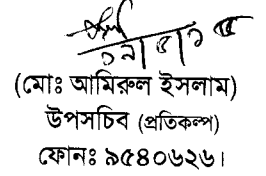 (মোঃ আমিরুল ইসলাম)
উপসচিব (প্রতিকল্প)
ফোনঃ ৯৫৪০৬২৬।